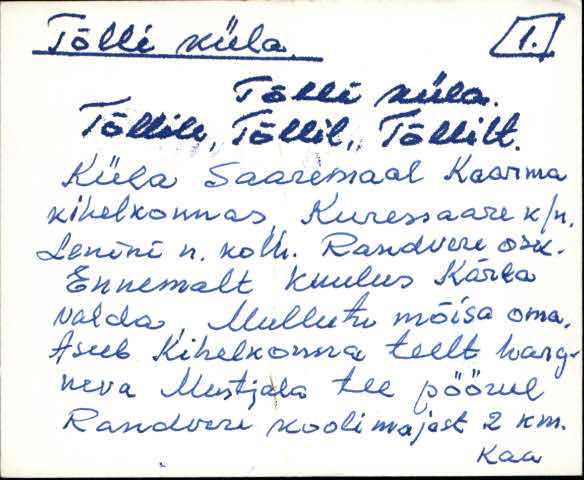 Tõlli küla. 1.
Tõlli küla.
Tõllile, Tõllil, Tõllilt.
Küla Saaremaal Kaarma
kihelkonnas, Kuressaare k/n.
Lenini n. kolh. Randvere osk.
Ennemalt kuulus Kärla
valda, Mullutu mõisa oma.
Asub Kihelkonna teelt harg-
neva Mustjala tee pöörul
Randvere koolimajast 2 km.
Kaa